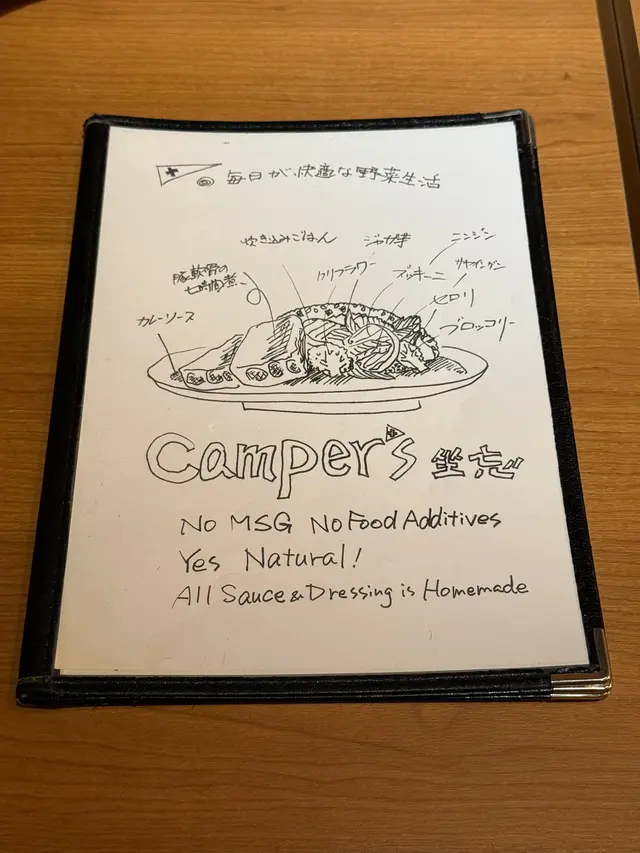 毎日が快適な野菜生活
炊き込みごはん
ジャガ芋
ニンジン
豚軟骨の
七時間煮
カリフラワー
ズッキーニ
サヤインゲン
セロリ
カレーソース
ブロッコリー
Camper's 坐忘
No MSG No Food Additives
Yes Natural!
All Sauce & Dressing is Homemade